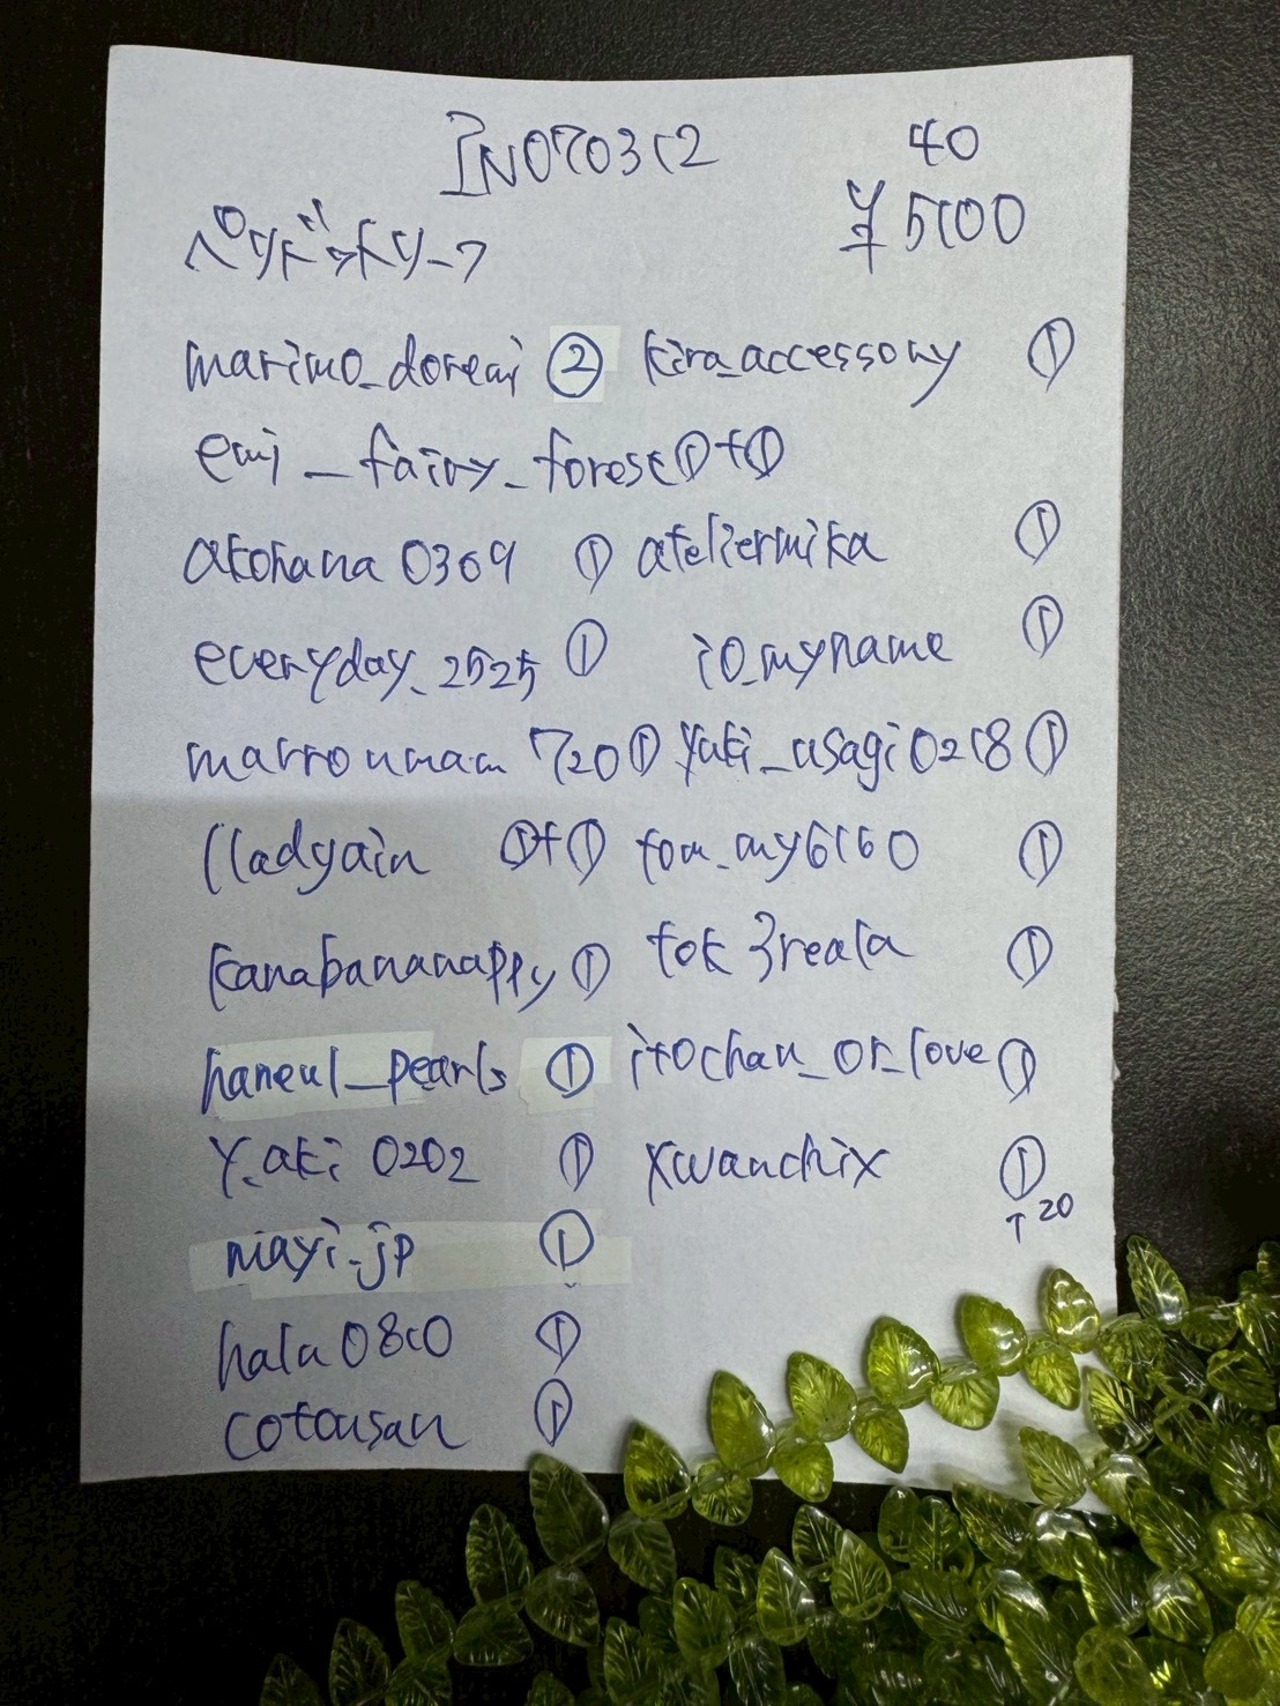 IN070312 40
ペリドットリーフ ¥5100
marimo_doremi ② kira_accessory ①
emi_fairy_forest ①+①
akohana0309 ① ateliermika ①
everyday_2525 ① io_myname ①
marroumam720 ① yuki_usagi0218 ①
lladyain ①+① tom_my6160 ①
kanabananappy ① tok3reala ①
haneul_pearls ① itochan_or_love ①
Y_aki0202 ① xwanchix ①
↑20
miayi_jp ①
hala0810 ①
cotousan ①